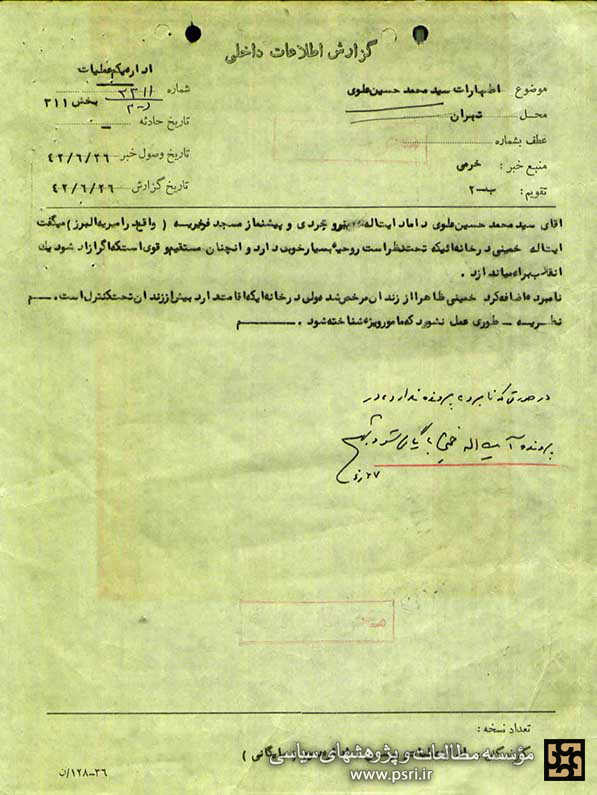 گزارش اطلاعات داخلی
اداره یکم عملیات
موضوع اظهارات سید محمد حسین علوی
شماره
بخش ۳۱۱
محل تهران
تاریخ حادثه
عطف بشماره
تاریخ وصول خبر ۴۲/۶/۲۶
منبع خبر: خرمی
تاریخ گزارش ۴۲/۶/۲۶
تقویم: ب-۲
آقای سید محمد حسین علوی داماد ایت‌اله بروجردی و پیشنماز مسجد فخریه ( واقع در امیریه البرز ) میگفت
ایت‌اله خمینی در خانه ائیکه تحت نظر است روحیه بسیار خوب دارد و انچنان مستقیم و قوی است که اگر ازاد شود یك
انقلاب براه میاندازد .
نامبرده اضافه کرد خمینی ظاهرا از زندان مرخص شد ولی در خانه ایکه اقامت دارد بیش از زندان تحت کنترل است . م
نظریه – طوری عمل نشود که مامور ویژه شناخته شود . م
در صورتی که نامبرده پرونده ندارد در
پرونده آیت اله خمینی بایگانی شود
تعداد نسخه :
مؤسسه مطالعات و پژوهشهای سیاسی
www.psri.ir
۳۶-۱۲۸/ن